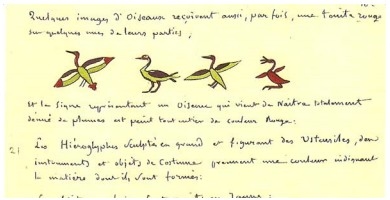 Quelques images d'Oiseaux reçoivent aussi, par fois, une teinte rouge
sur quelques unes de leurs parties;
et le signe représentant un Oiseau qui vient de Naître totalement
dénué de plumes est peint tout entier de couleur Rouge:
2] Les Hiéroglyphes sculptés en grand et figurant des Ustensiles, des
instruments et objets de Costume prennent une couleur indiquant
la matière dont ils sont formés: